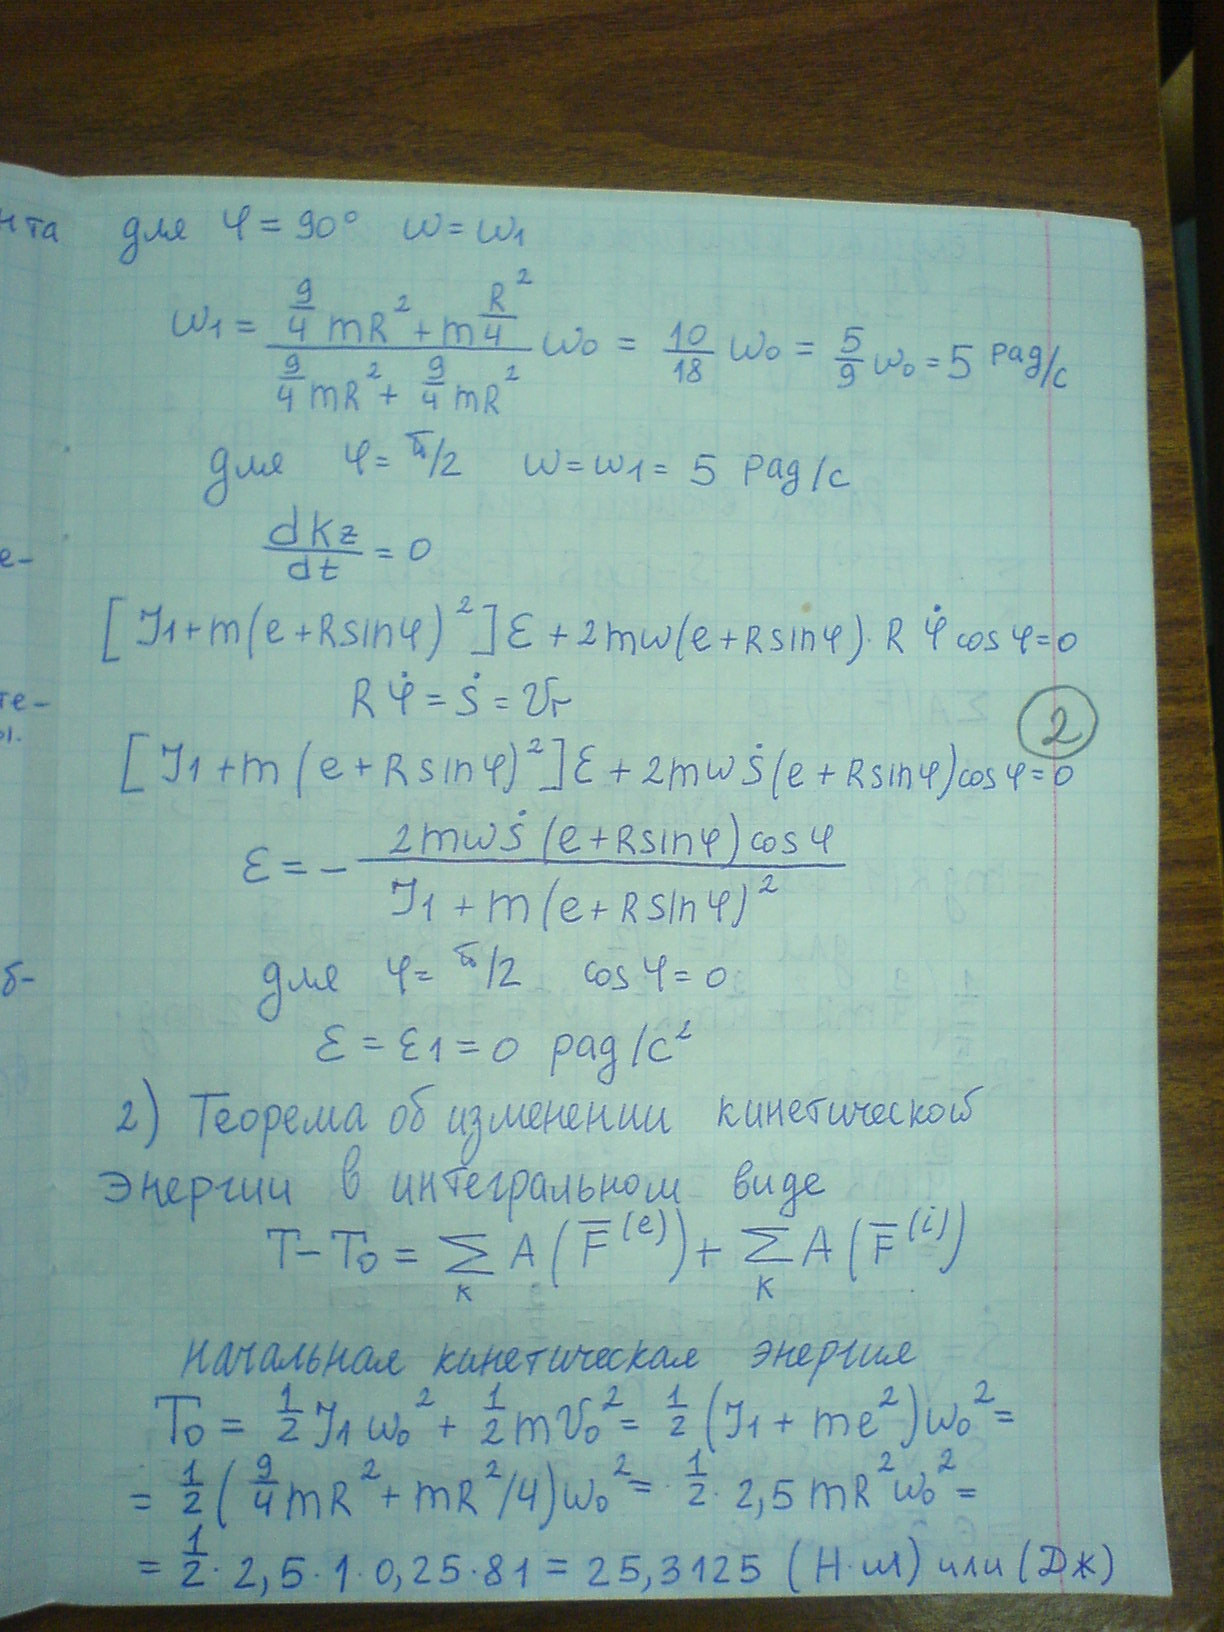 нта
для φ = 90° ω = ω1
ω1 = (9/4 mR² + m R²/4)/(9/4 mR² + 9/4 mR²) ω0 = 10/18 ω0 = 5/9 ω0 = 5 рад/с
для φ = π/2 ω = ω1 = 5 рад/с
dKz/dt = 0
е-
[J1 + m(e + R sin φ)²]ε + 2mω(e + R sin φ)·R φ̇ cos φ = 0
Rφ̇ = ṡ = Vr
те-
ы.
2
[J1 + m(e + R sin φ)²]ε + 2mωṡ(e + R sin φ)cos φ = 0
ε = - 2mωṡ(e + R sin φ)cos φ / J1 + m(e + R sin φ)²
для φ = π/2 cos φ = 0
б-
ε = ε1 = 0 рад/с²
2) Теорема об изменении кинетической
энергии в интегральном виде
T - T0 = Σ_к A(F̅^(e)) + Σ_к A(F̅^(i))
начальная кинетическая энергия
T0 = 1/2 J1 ω0² + 1/2 mV0² = 1/2 (J1 + me²)ω0² =
= 1/2 (9/4 mR² + mR²/4)ω0² = 1/2 · 2,5 mR²ω0² =
= 1/2 · 2,5 · 1 · 0,25 · 81 = 25,3125 (Н·м) или (Дж)